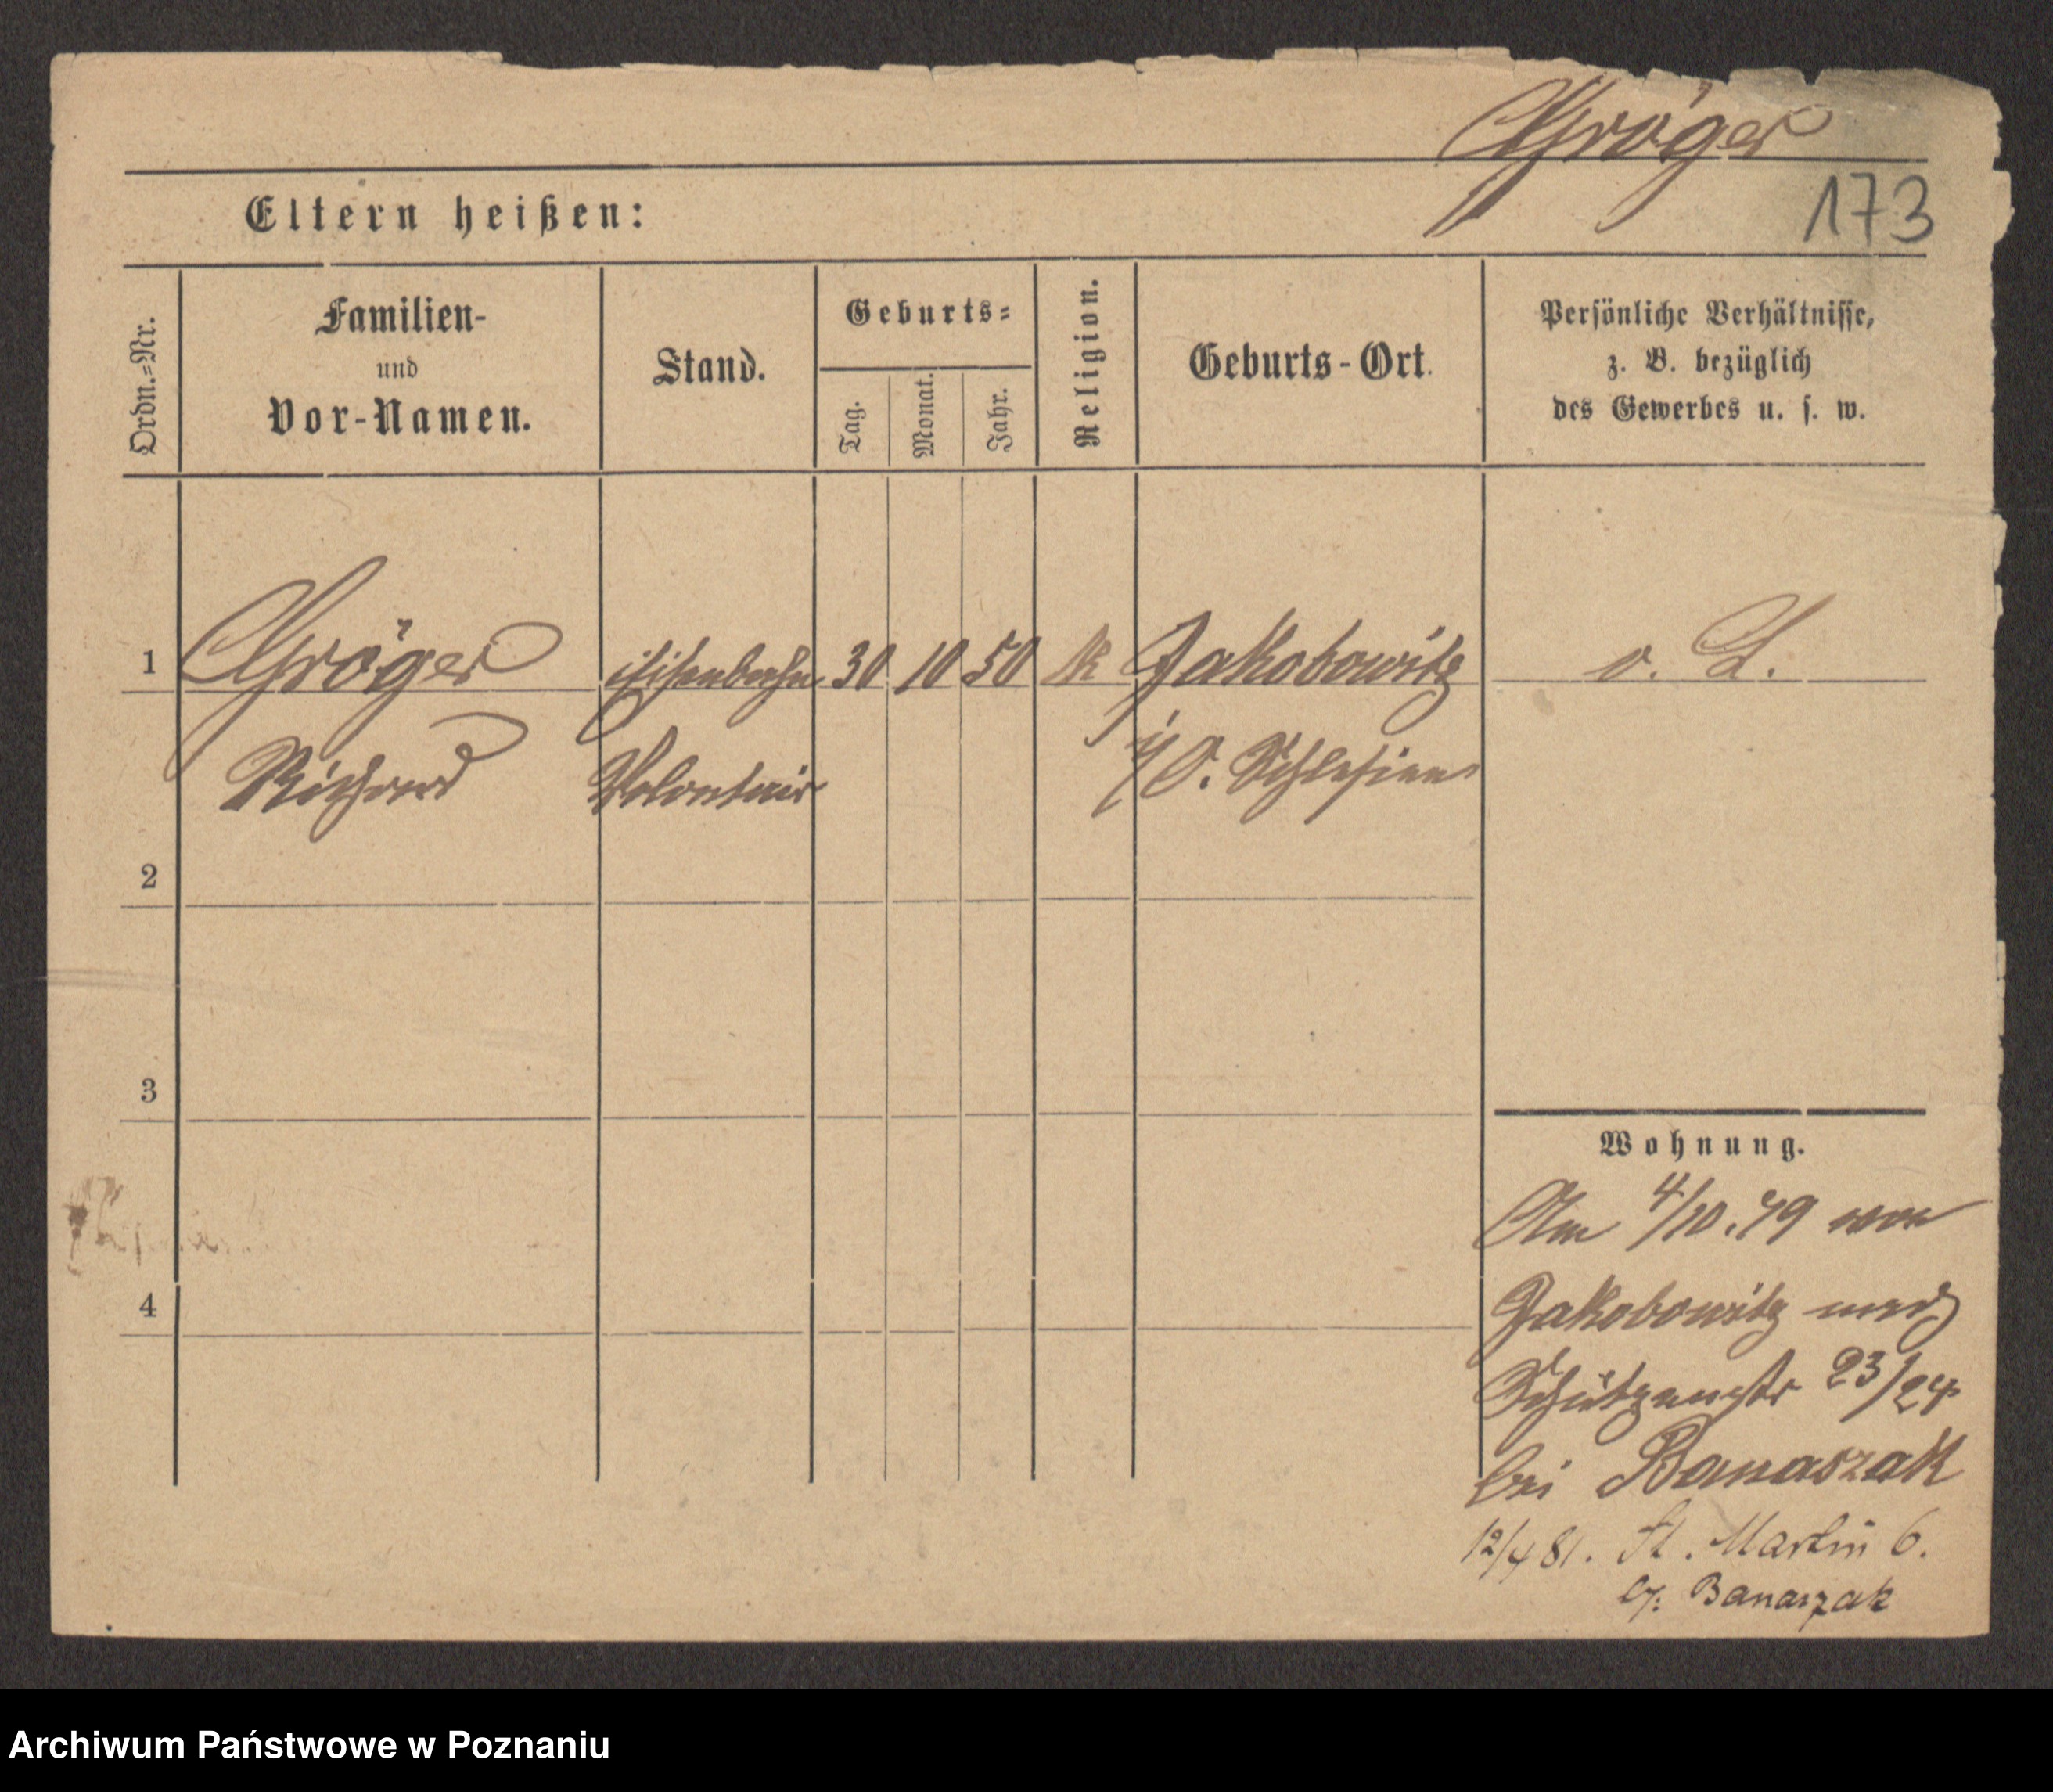 Gröger
173
Eltern heißen:
Ordn.=Nr.
Familien-
und
Vor-Namen.
Stand.
Geburts=
Tag.
Monat.
Jahr.
Religion.
Geburts-Ort.
Persönliche Verhältnisse,
z. B. bezüglich
des Gewerbes u. s. w.
1 Gröger Eisenbahn 30 10 50 k Jakobowitz o. L.
Richard Volontair i/O. Schlesien
2
3
Wohnung.
Am 4/10.79 von
4
Jakobowitz nach
Schützenstr 23/24
bei Banaszak
12/4 81. St. Martin 6.
b/. Banaszak
Archiwum Państwowe w Poznaniu